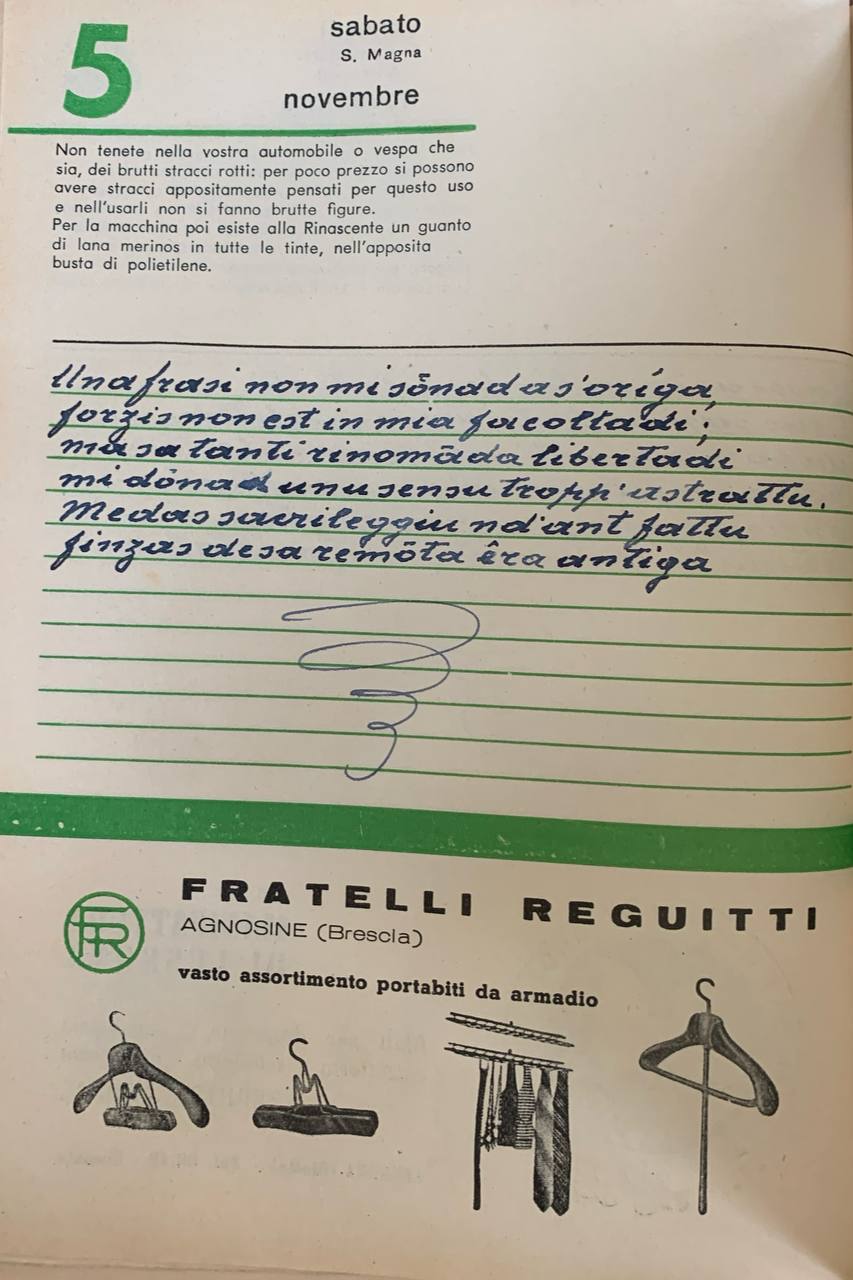 5
sabato
S. Magna
novembre
Non tenete nella vostra automobile o vespa che
sia, dei brutti stracci rotti: per poco prezzo si possono
avere stracci appositamente pensati per questo uso
e nell'usarli non si fanno brutte figure.
Per la macchina poi esiste alla Rinascente un guanto
di lana merinos in tutte le tinte, nell'apposita
busta di polietilene.
Una frasi non mi sônad a s'oríga,
forzis non est in mia facoltadi;
ma sa tanti rinomāda libertadi
mi dōnad unu sensu tropp'astrattu.
Medas sacrileggiu nd'ant fattu
finzas de sa remōta êra antiga
FR
FRATELLI REGUITTI
AGNOSINE (Brescia)
vasto assortimento portabiti da armadio